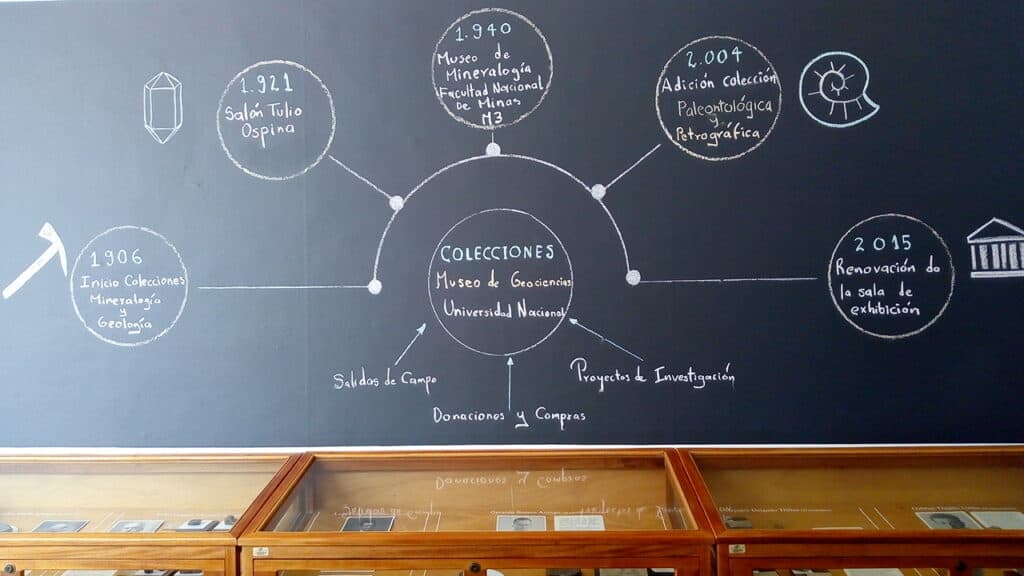 1906
Inicio Colecciones
Mineralogía
y
Geología
1.921
Salón Tulio
Ospina
1.940
Museo de
Mineralogía
Facultad Nacional
De Minas
M3
2.004
Adición Colección
Paleontológica
y
Petrográfica
2015
Renovación de
la sala de
exhibición
COLECCIONES
Museo de Geociencias
Universidad Nacional
Salidas de Campo
Donaciones y Compras
Proyectos de Investigación